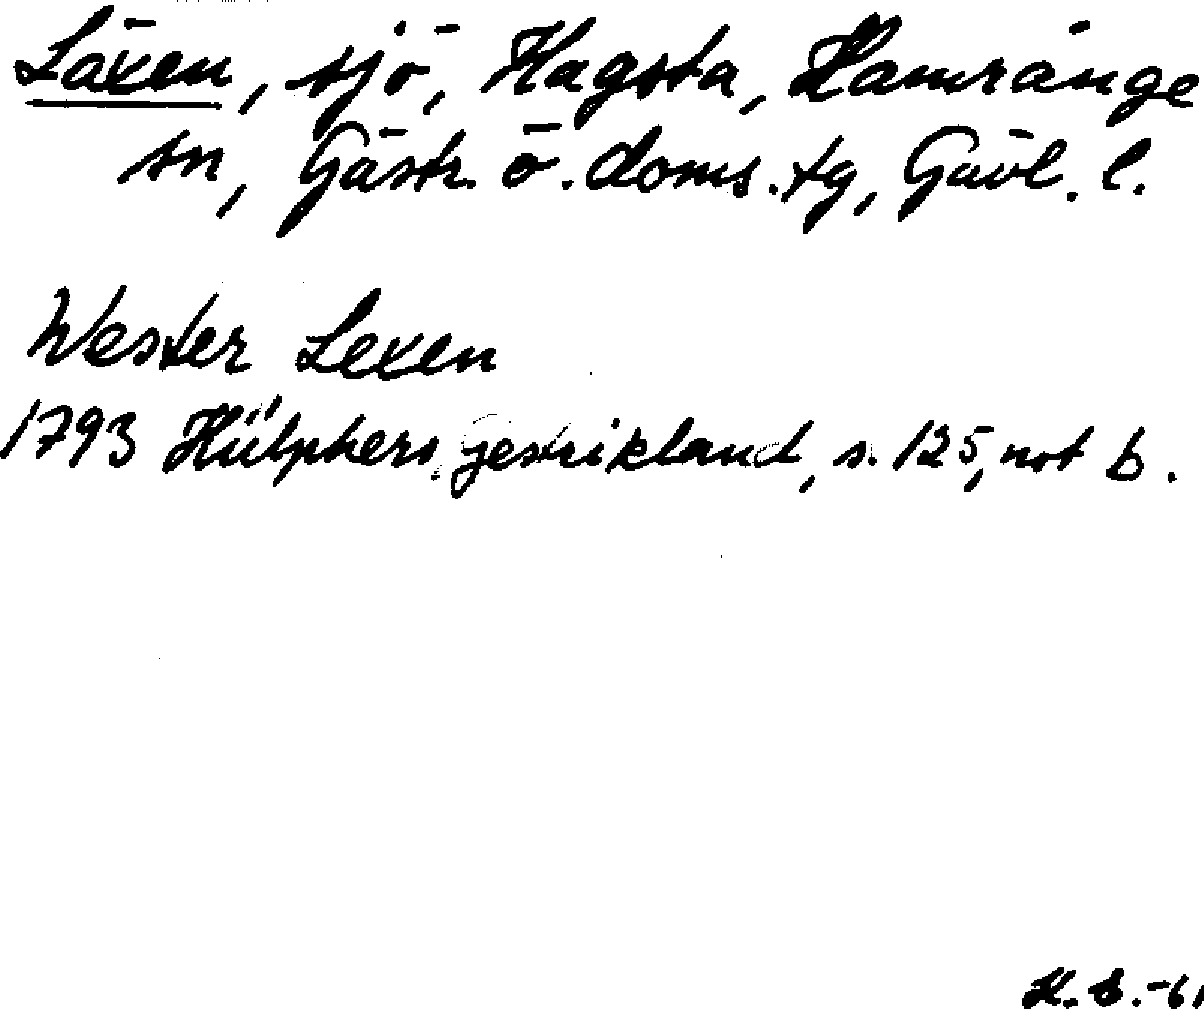 Läxen, sjö, Hagsta, Hamrånge
sn, Gästr. ö. doms. tg, Gävl. l.
Wester Lexen
1793 Hülphers, Gestrikland, s. 125, not b.
H. S. -61